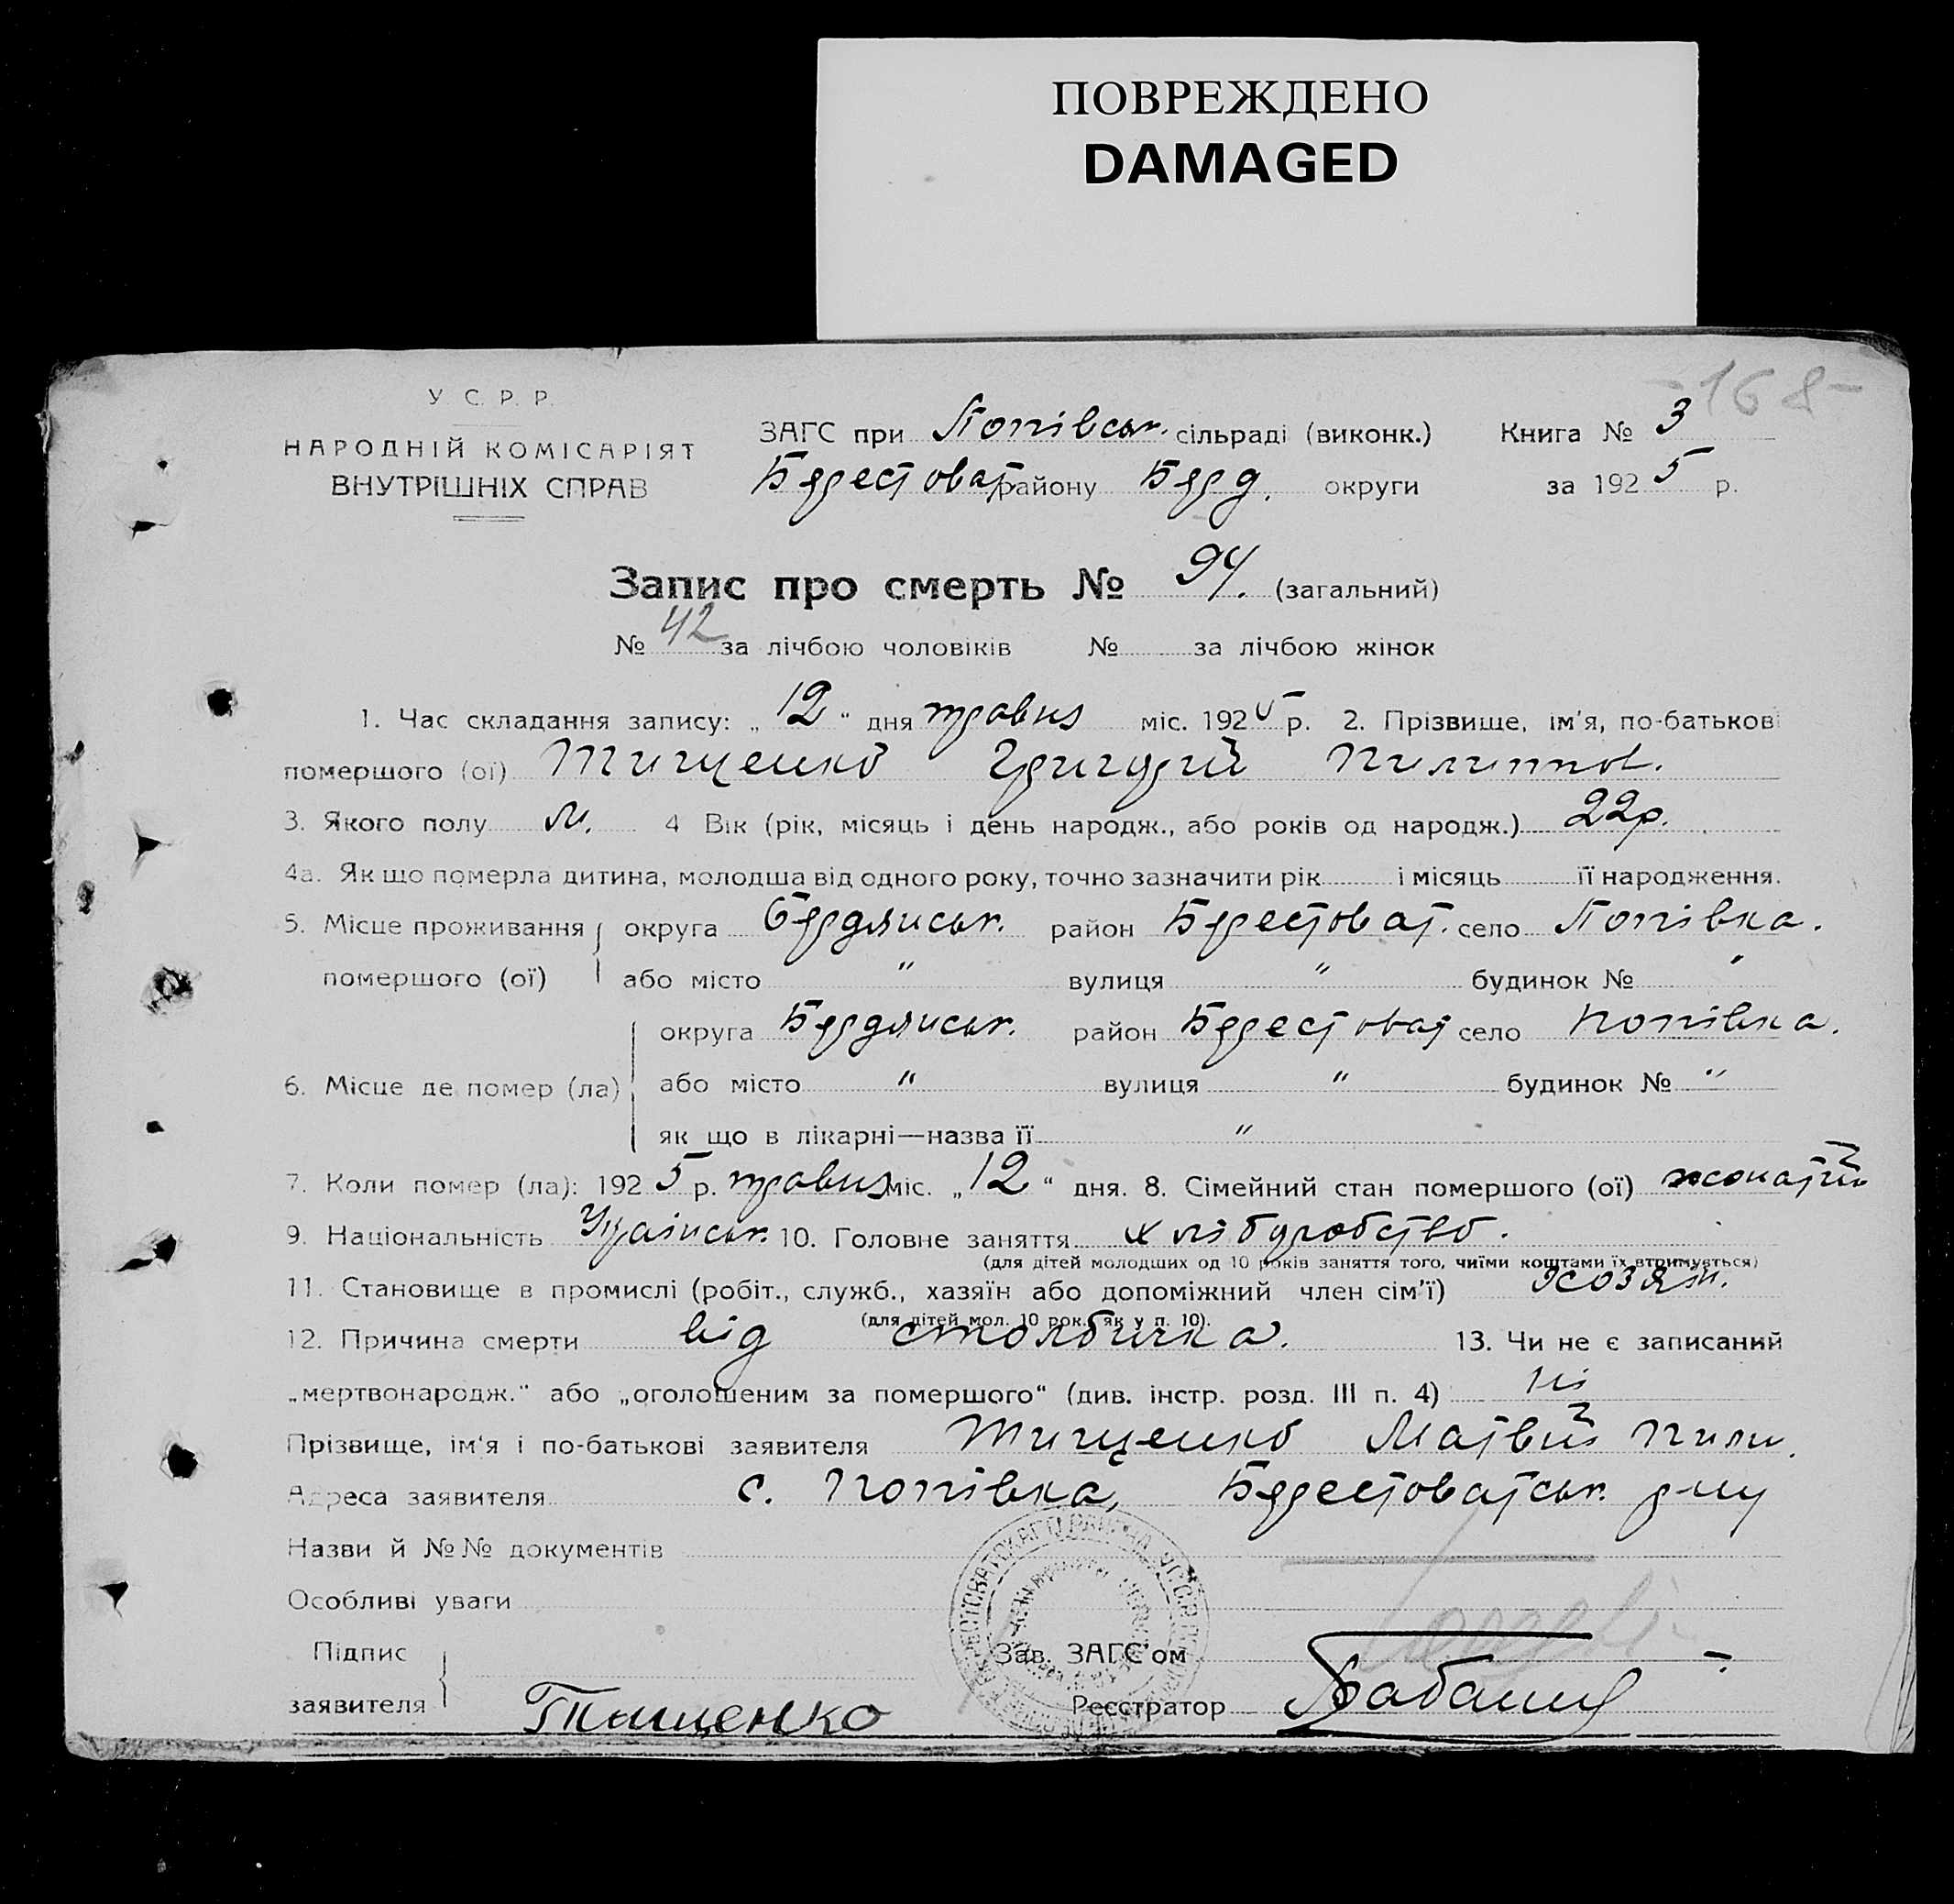 ПОВРЕЖДЕНО
DAMAGED
-168-
У. С. Р. Р.
НАРОДНІЙ КОМІСАРІЯТ
ВНУТРІШНІХ СПРАВ
ЗАГС при Попівськ. сільраді (виконк.) Книга № 3
Берестоват району Берд. округи за 1925 р.
Запис про смерть № 94. (загальний)
№ 42 за лічбою чоловіків № за лічбою жінок
1. Час складання запису: „12" дня травня міс. 1925 р. 2. Прізвище, ім'я, по-батькові
помершого (ої) Тищенко Григорій Пилипов.
3. Якого полу м. 4 Вік (рік, місяць і день народж., або років од народж.) 22р.
4а. Як що померла дитина, молодша від одного року, точно зазначити рік і місяць її народження.
5. Місце проживання округа Бердянськ. район Берестоват. село Попівка.
помершого (ої) або місто " вулиця " будинок № "
округа Бердянськ. район Берестоват село Попівка.
6. Місце де помер (ла) або місто " вулиця " будинок № "
як що в лікарні—назва її "
7. Коли помер (ла): 1925 р. травня міс. „12" дня. 8. Сімейний стан помершого (ої) жонатий
9. Національність Українськ. 10. Головне заняття хліборобство.
(для дітей молодших од 10 років заняття того, чиїми коштами їх втримується)
11. Становище в промислі (робіт., служб., хазяїн або допоміжний член сім'ї) хозяїн.
(для дітей мол. 10 рок. як у п. 10).
12. Причина смерти від столбнячка. 13. Чи не є записаний
„мертвонародж." або „оголошеним за помершого" (див. інстр. розд. III п. 4) ні
Прізвище, ім'я і по-батькові заявителя Тищенко Матвій Пили.
Адреса заявителя с. Попівка, Берестоватськ. р-ну
Назви й №№ документів
Особливі уваги
Підпис
заявителя Тищенко
Зав. ЗАГС'ом
Реєстратор